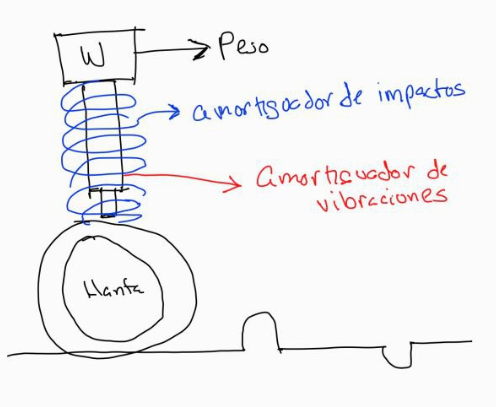 W
Peso
amortiguador de impactos
amortiguador de
vibraciones
Llanta